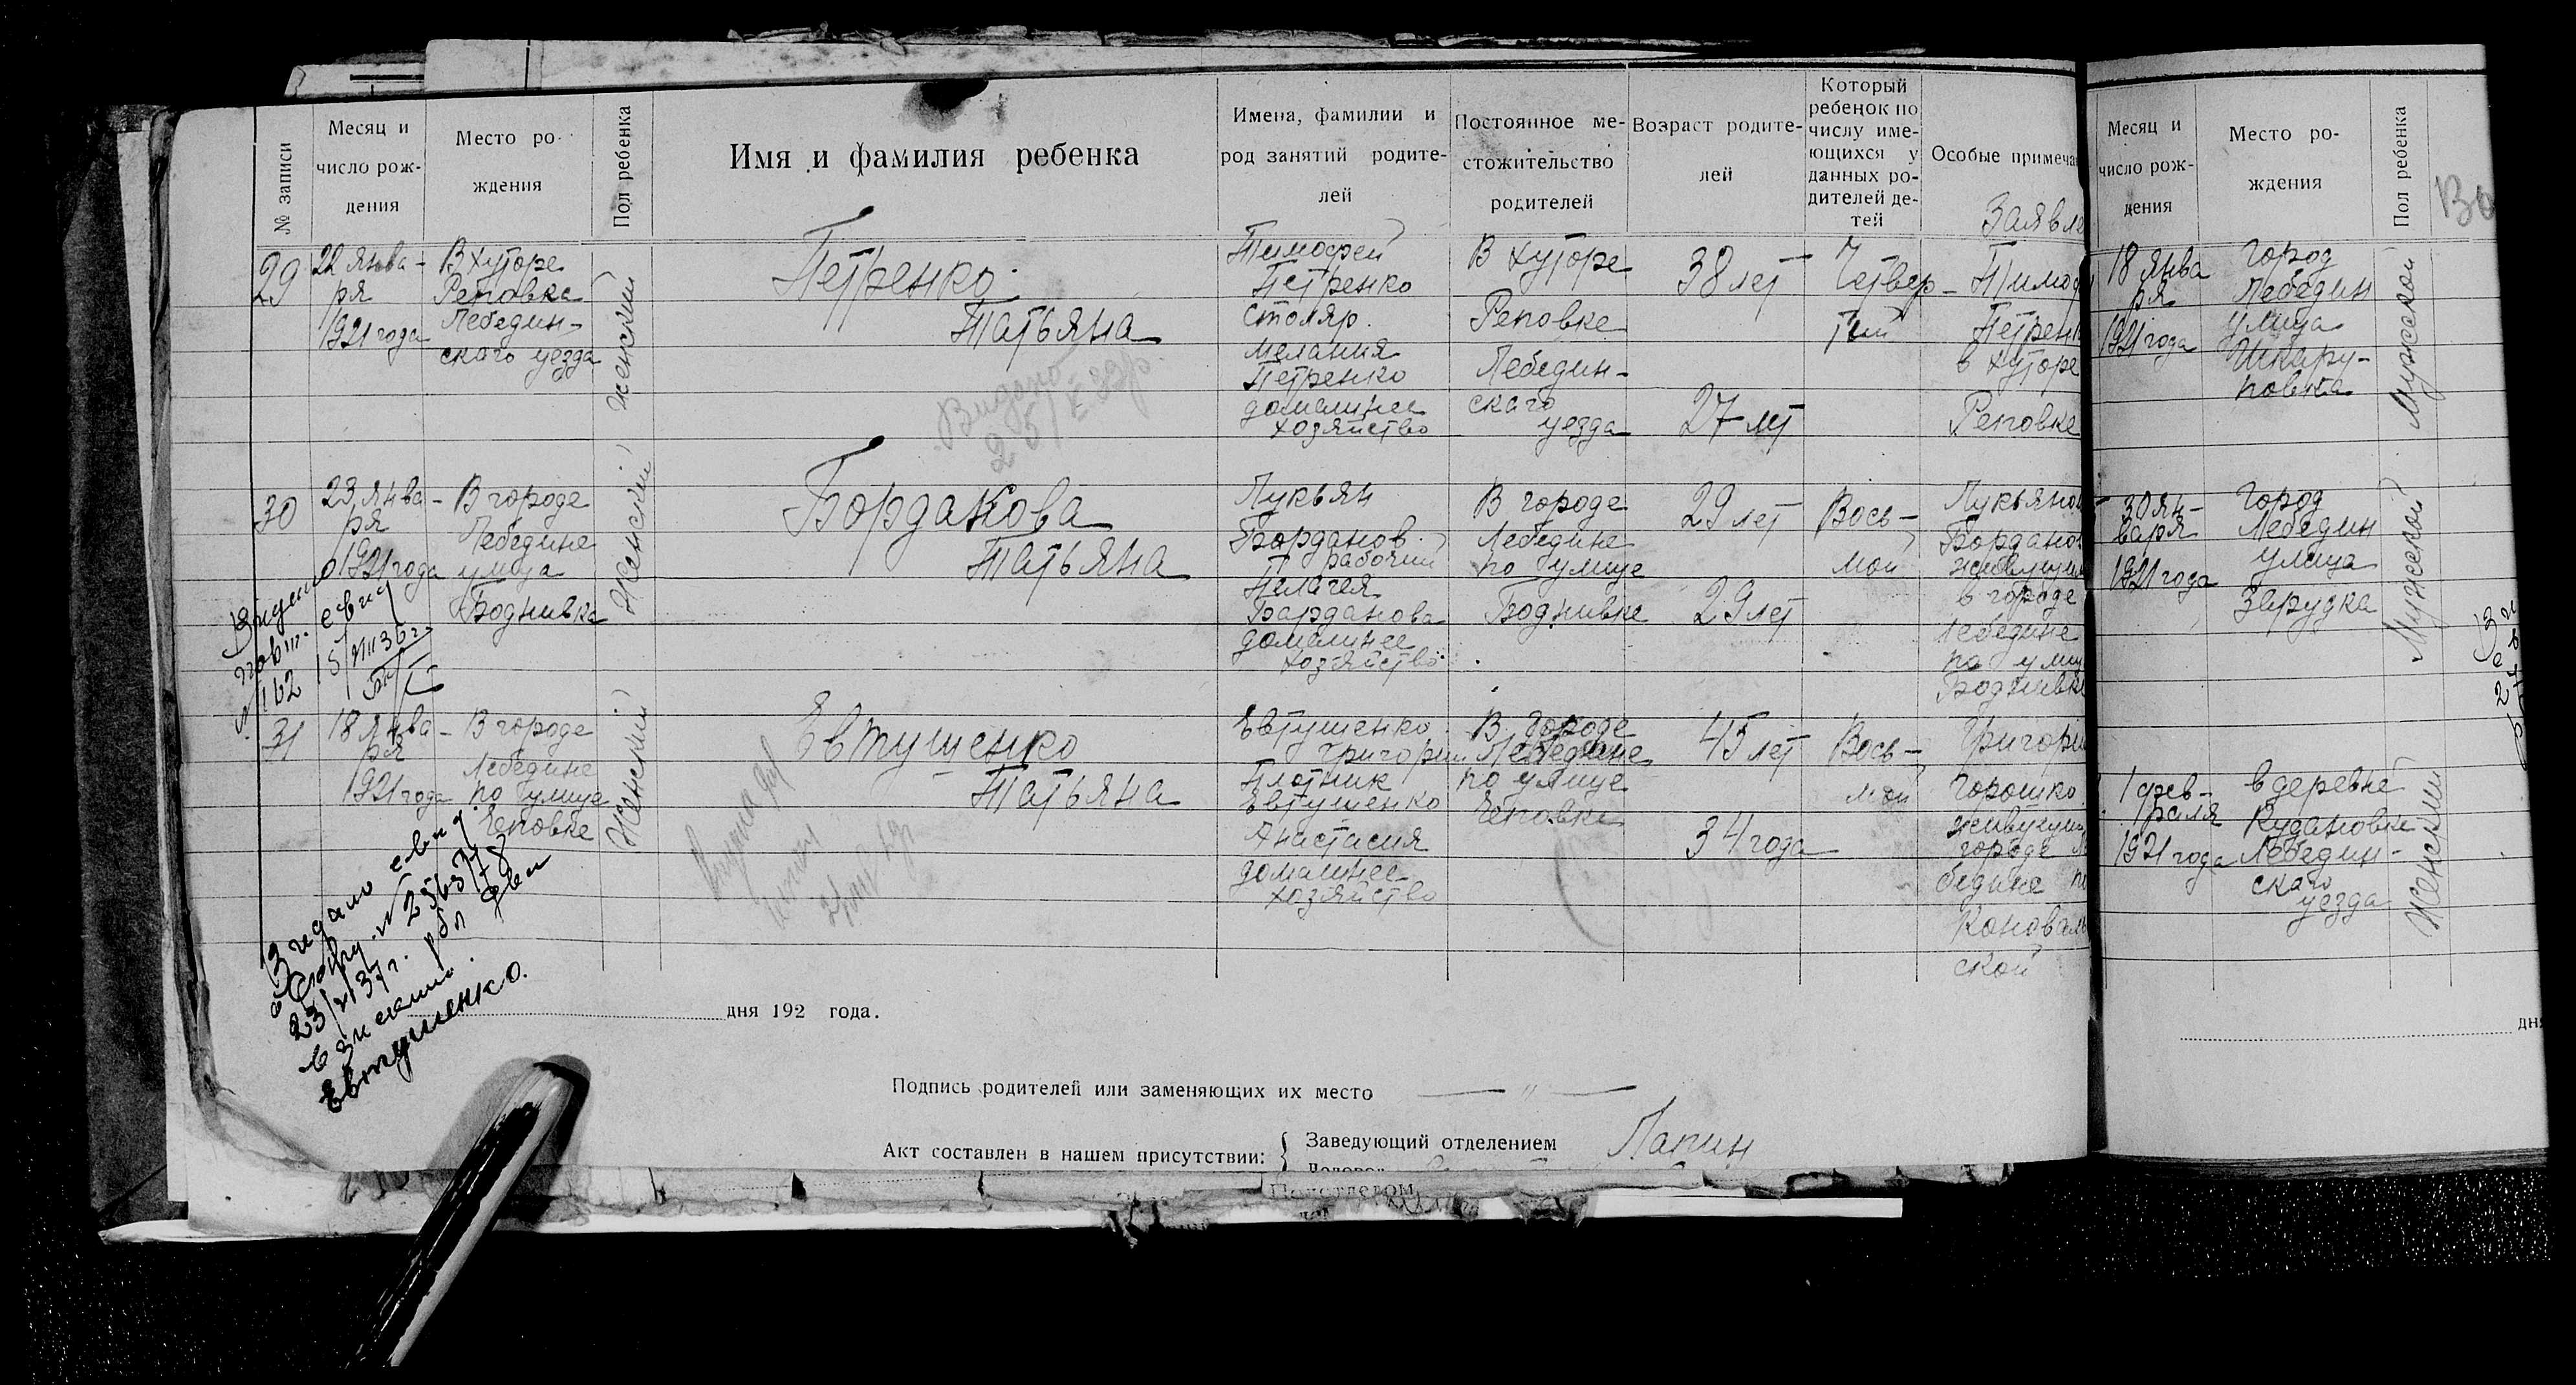 № записи
Месяц и
число рож-
дения
Место ро-
ждения
Пол ребенка
Имя и фамилия ребенка
Имена, фамилии и
род занятий родите-
лей
Постоянное ме-
стожительство
родителей
Возраст родите-
лей
Который
ребенок по
числу име-
ющихся у
данных ро-
дителей де-
тей
Особые примеча
Заявле
29
22 янва-
ря
1921 года
В хуторе
Реповка
Лебедин-
ского уезда
Женский
Петренко
Татьяна
Тимофей
Петренко
столяр.
Мелания
Петренко
домашнее
хозяйство
В хуторе
Реповке
Лебедин-
скаго
уезда
38 лет
27 лет
Четвер-
тый
Тимоф
Петренк
в хуторе
Реповке
30
23 янва-
ря
1921 года
В городе
Лебедине
улица
Боднивка
Женский
Бордакова
Татьяна
Лукьян
Борданов.
рабочий
Пелагея
Барданова
домашнее
хозяйство.
В городе
Лебедине
по улице
Боднивке
29 лет
29 лет
Вось-
мой
Лукьянов
Борданов
живущи
в городе
Лебедине
по ули
Боднивке
31
18 янва-
ря
1921 года
В городе
Лебедине
по улице
Чеповке
Женский
Евтушенко
Татьяна
Евтушенко
Григорий
Плотник
Евтушенко
Анастасия
домашнее
хозяйство
В городе
Лебедине
по улице
Чеповке
45 лет
34 года
Вось-
мой
Григори
Горошко
живущи
городе Ле
бедине по
Коноваль
ской
Видано свид.
№ 25637
23/XI 37 г.
Евтушенко.
дня 192 года.
Подпись родителей или заменяющих их место — " —
Акт составлен в нашем присутствии:
Заведующий отделением Лапин
Месяц и
число рож-
дения
Место ро-
ждения
Пол ребенка
18 янва
ря
1921 года
Город
Лебедин
улица
Шкару-
повка
Мужской
30 ян-
варя
1921 года
Город
Лебедин
улица
Зарудка
Мужской
1 фев-
раля
1921 года
в деревне
Кудановке
Лебедин-
скаго
уезда
Женский
дн